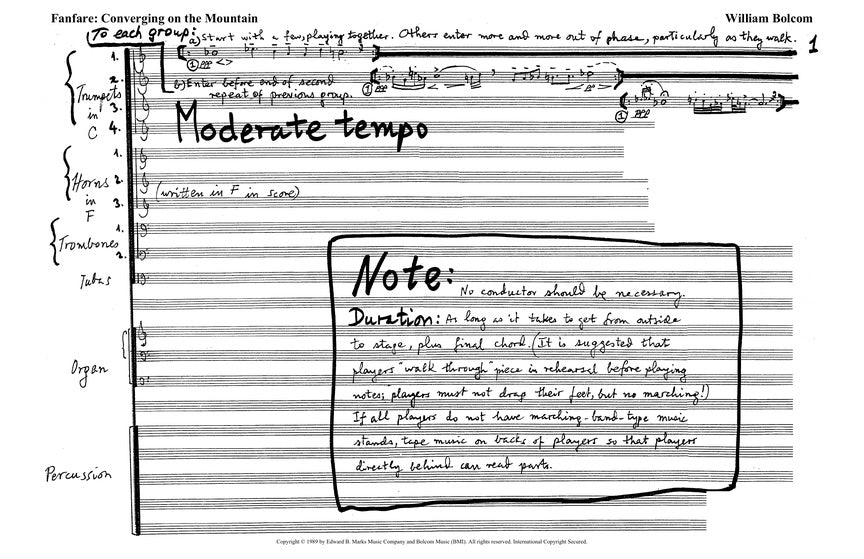 Fanfare: Converging on the Mountain
William Bolcom
To each group:
a) Start with a few, playing together. Others enter more and more out of phase, particularly as they walk.
1
b) Enter before end of second
repeat of previous group.
Moderate tempo
① ppp
① ppp
① ppp
Trumpets
in
C
1.
2.
3.
4.
Horns
in
F
1.
2.
3.
(written in F in score)
Trombones
1.
2.
Tubas
Organ
Percussion
Note:
No conductor should be necessary.
Duration: As long as it takes to get from outside
to stage, plus final chord. (It is suggested that
players "walk through" piece in rehearsal before playing
notes; players must not drag their feet, but no marching!)
If all players do not have marching-band-type music
stands, tape music on backs of players so that players
directly behind can read parts.
Copyright © 1989 by Edward B. Marks Music Company and Bolcom Music (BMI). All rights reserved. International Copyright Secured.